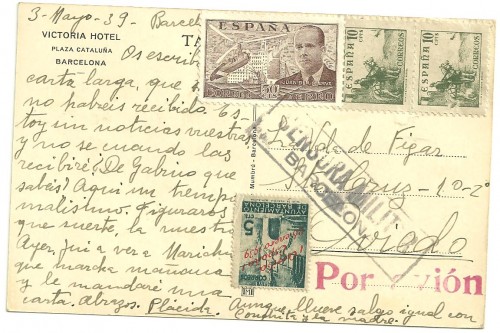 3-Mayo-39- Barcel
VICTORIA HOTEL
PLAZA CATALUÑA
BARCELONA
TA
Os escrib
carta larga, que
no habréis recibido. Es-
toy sin noticias vuestras
y no se cuando las
recibiré. De Gabino que
sabéis? Aquí un tiempo
malísimo. Figuraros
que suerte la nuestra
Ayer, fui a ver a
que marcha mañana
y le mandaré una
carta. Abrazos. Plácida. Aunque llueve salgo igual con
y la madre.
ESPAÑA
50 CTS
JUAN DE LA CIERVA
ESPAÑA
10 CTS
CORREOS
ESPAÑA
10 CTS
CORREOS
CENSURA MILITAR
BARCELONA
de Figar
10-2º
Oviedo
AYUNTAMIENTO
BARCELONA
5 CTS
Barcelona
Por avión